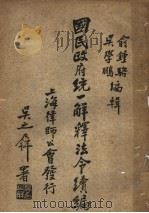 俞鍾駱
吳學鵬 編輯
國民政府統一解釋法令續編
上海律師公會發行
吳之屏署